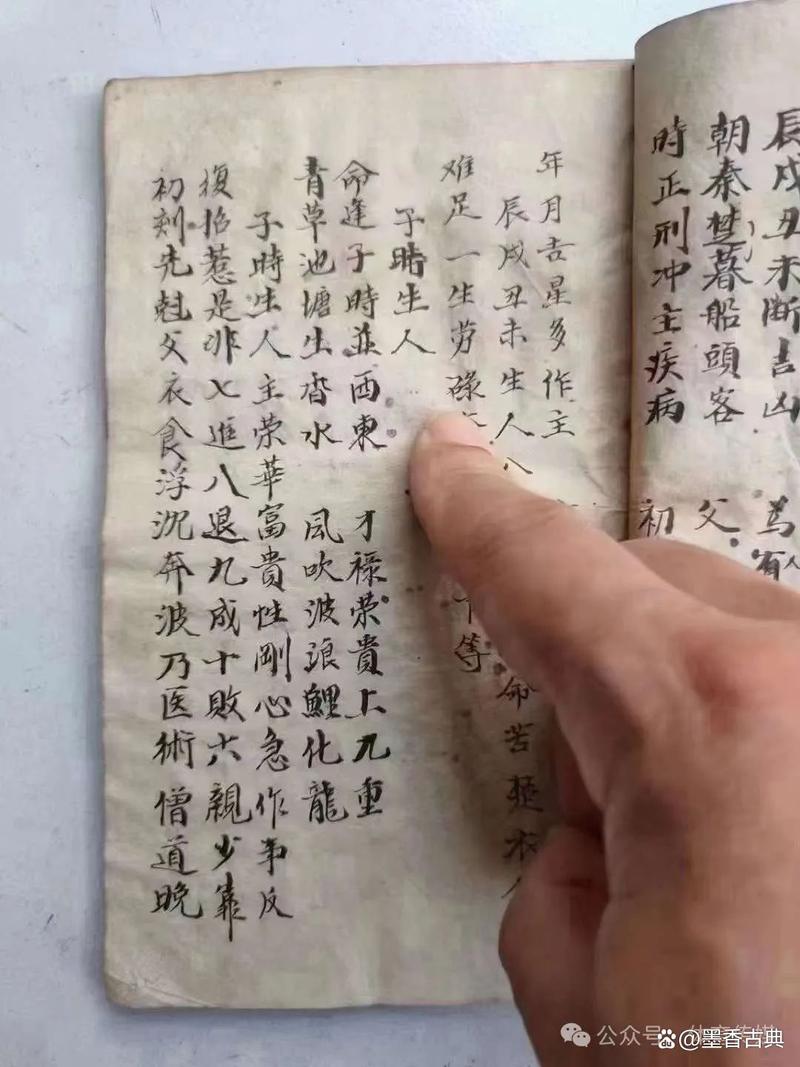 辰戌丑未断吉凶 為有人
朝秦楚暮船頭客 父
時正刑冲主疾病 初
年月吉星多作主
辰戌丑未生人八 命苦
难足一生劳碌 下等
子時生人
命逢子時並西東 才禄荣貴上九重
青草池塘生杳水 風吹波浪鯉化龍
子時生人主荣華富貴性剛心急作事反
復招惹是非七進八退九成十敗六親少靠
初刻先尅父衣食浮沉奔波乃医術僧道晚
公众号
Bai du @墨香古典